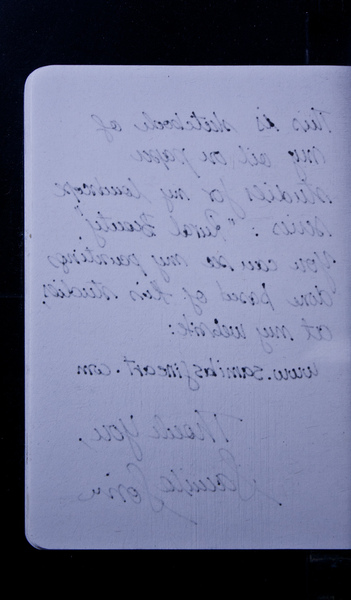 This is sketchbook of
my oil on paper
studies for my landscape
series: "Rural Beauty"
You can see my paintings
based of this studies,
at my website:
www.samiasfineart.com
Thank You,